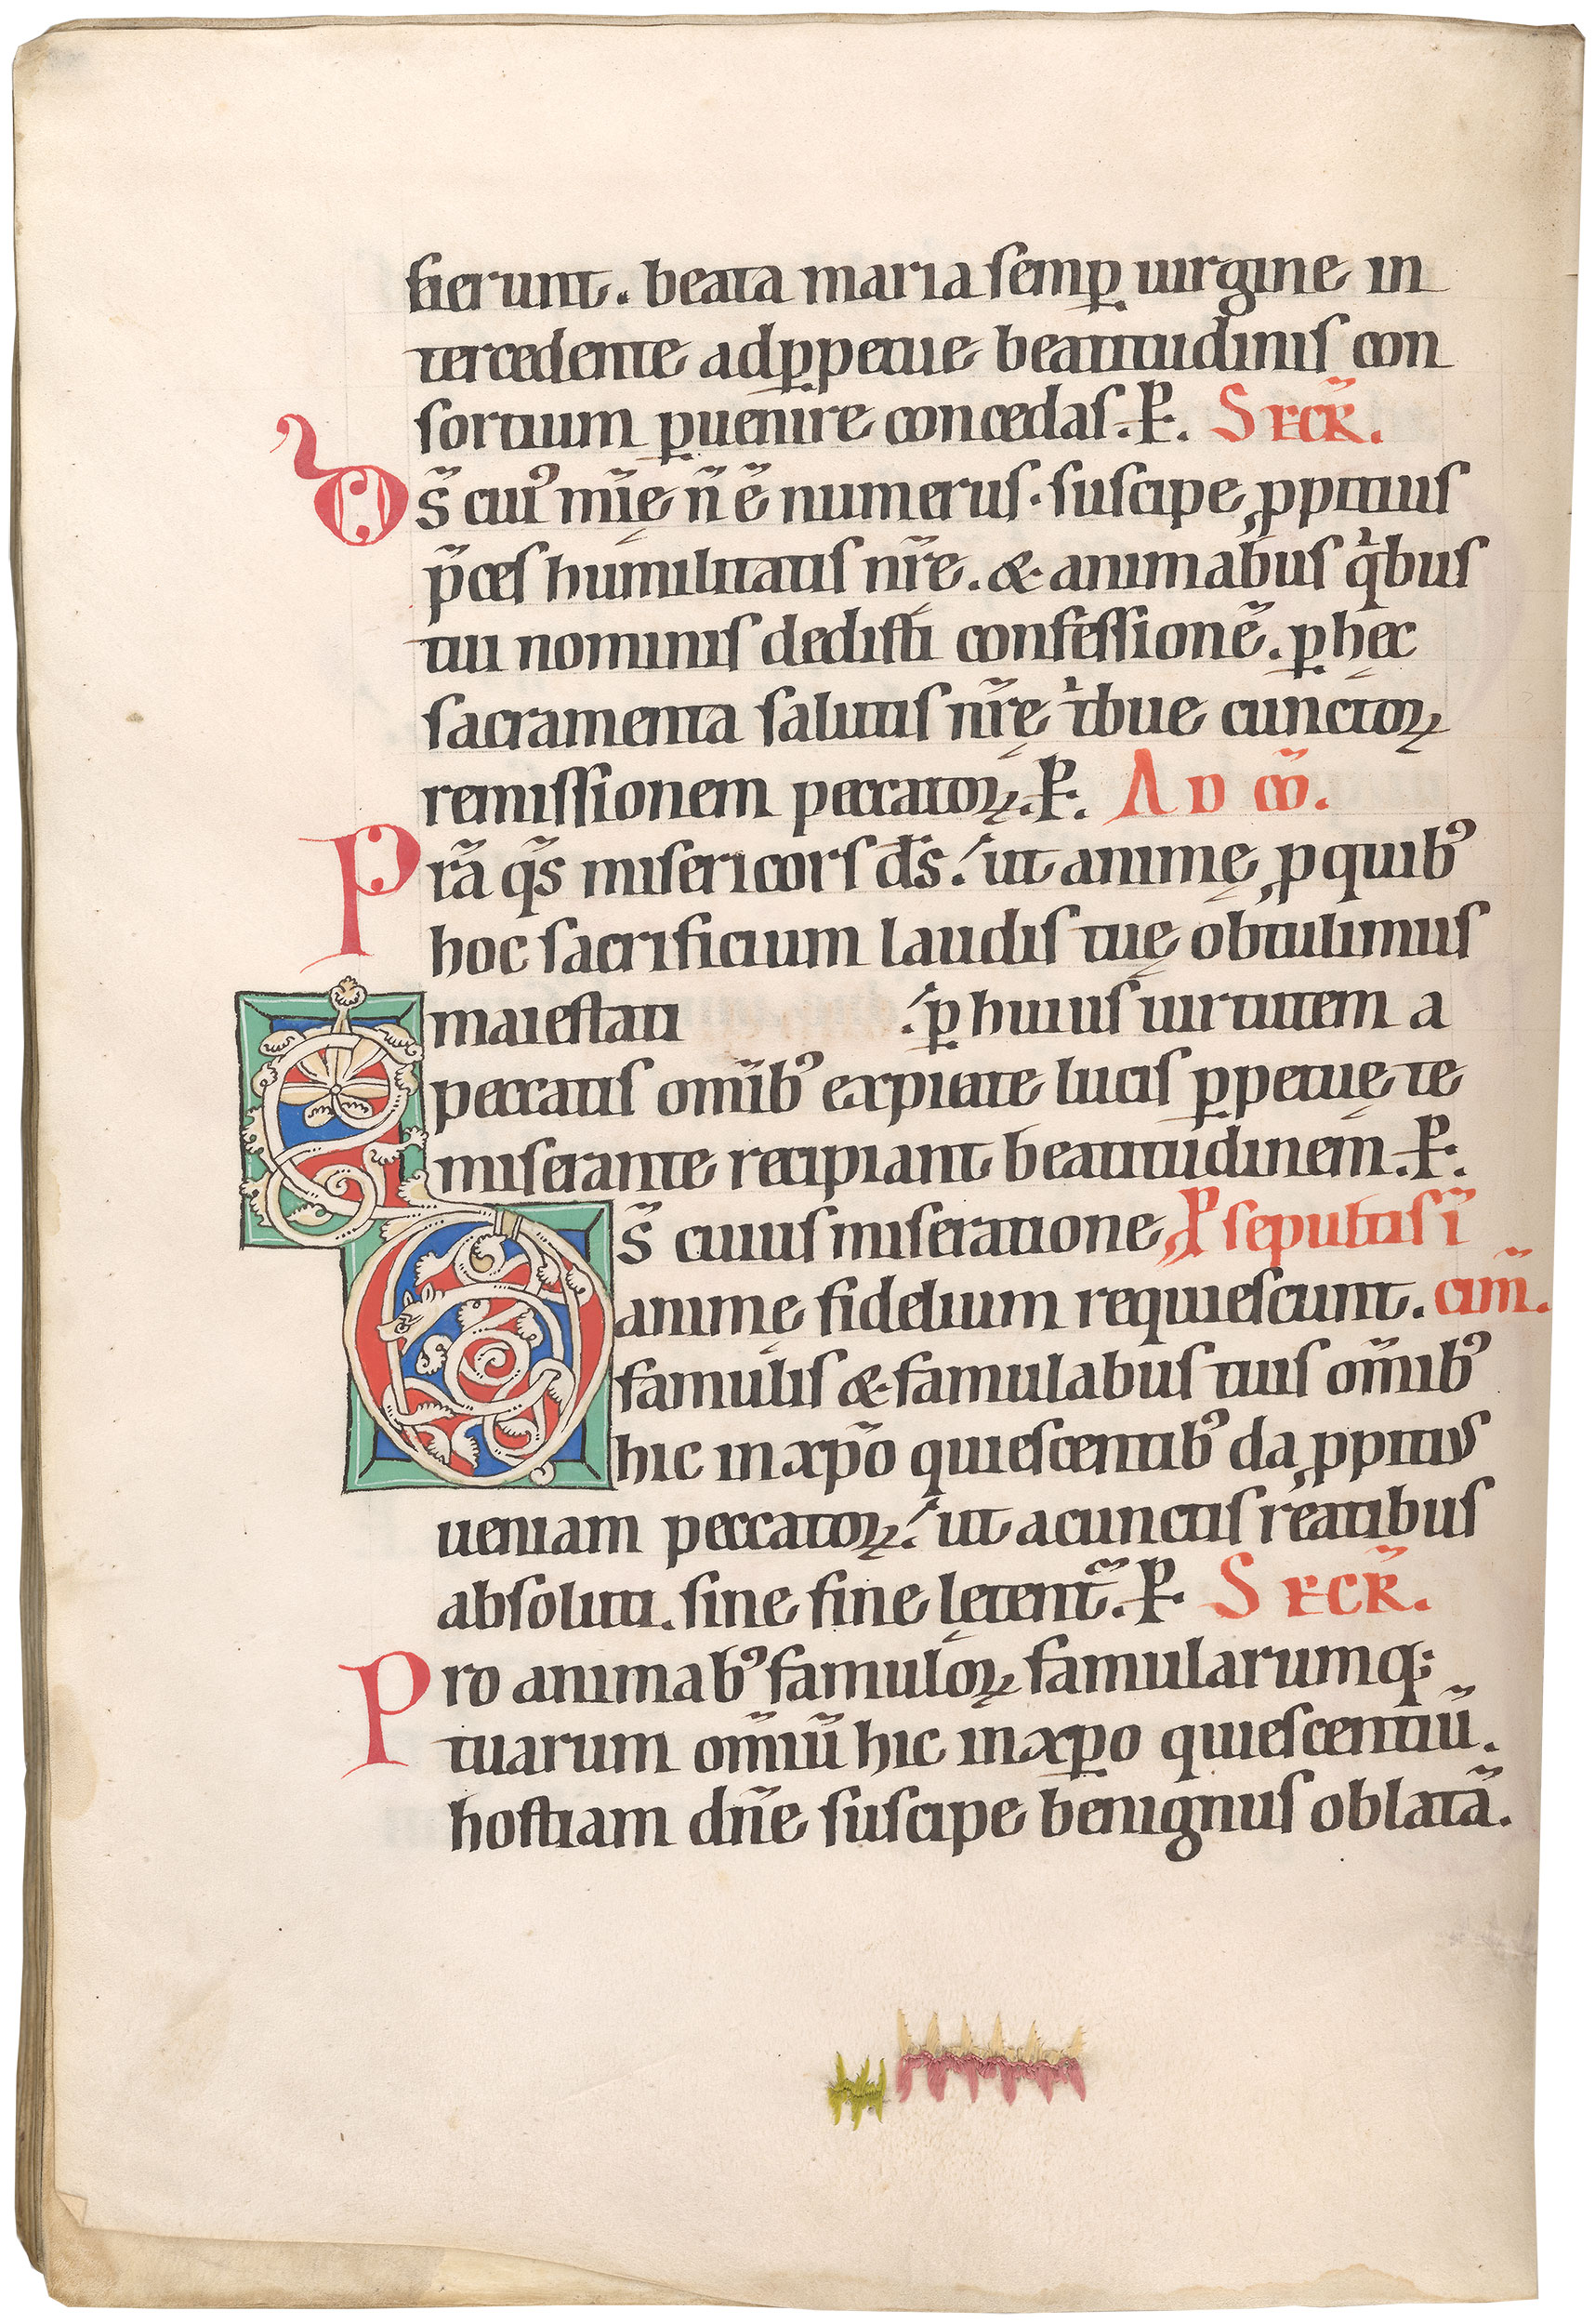 sierunt. beata maria semꝑ uirgine in
tercedente adꝑpetue beatitudinis con
sortium ꝑuenire concedas. P̵. SECR̃.
Ds̃ cui᾽ mĩę ñ ẽ numerus. suscipe ꝓpitius
p̃ces humilitatis nr̃e. & animabus qͥbus
tui nominis dedisti confessionẽ. ꝑ hęc
sacramenta salutis nr̃ę tͥbue cunctoꝝ
remissionem peccatoꝝ. P̵. AD CO᷈.
Prã qs̃ misericors ds̃. ut animę ꝓ quib᾽
hoc sacrificium laudis tuę obtulimus
maiestati . ꝑ huius uirtutem a
peccatis om̃ib᾽ expiate lucis ꝑpetuę te
miserante recipiant beatitudinem. P̵.
Ds̃ cuius miseratione P̵ sepultis ĩ
animę fidelium requiescunt. cim̃.
famulis & famulabus tuis om̃ib᾽
hic in xp̃o quiescentib᾽ da ꝓpitius
ueniam peccatoꝝ. ut a cunctis reatibus
absoluti. sine fine lętent᷈. P̵. SECR̃.
Pro animab᾽ famuloꝝ famularumq;
tuarum om̃iũ hic in xp̃o quiescentiũ.
hostiam dñe suscipe benignus oblatã.